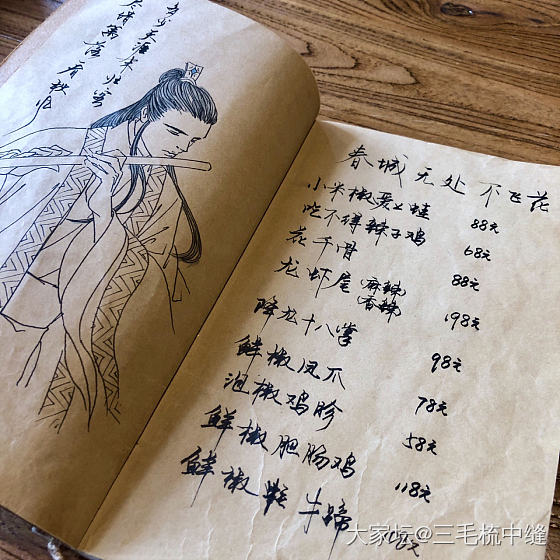 春城无处不飞花
小米椒爱上蛙 88元
吃不得辣子鸡 68元
花千骨 88元
龙虾尾(麻辣 香辣) 198元
降龙十八掌 98元
鲜椒凤爪 78元
泡椒鸡胗 58元
鲜椒腘肠鸡 118元
鲜椒 牛蹄
大家坛@三毛梳中缝